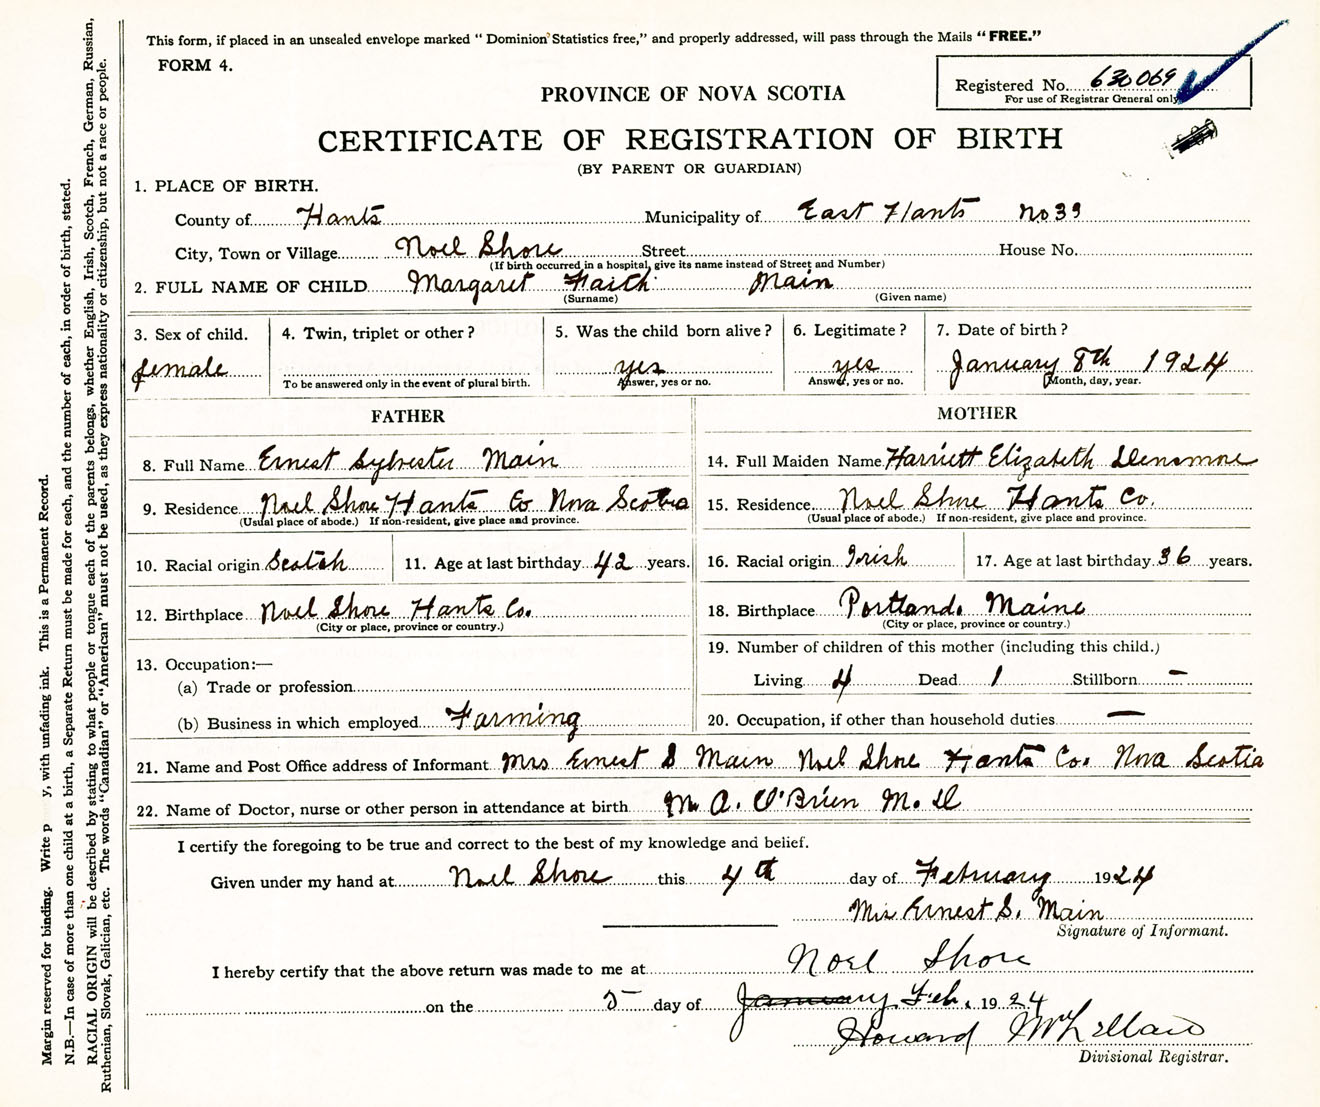 This form, if placed in an unsealed envelope marked "Dominion Statistics free," and properly addressed, will pass through the Mails "FREE."
FORM 4.
Registered No. 630069
For use of Registrar General only
PROVINCE OF NOVA SCOTIA
CERTIFICATE OF REGISTRATION OF BIRTH
(BY PARENT OR GUARDIAN)
1. PLACE OF BIRTH.
County of Hants Municipality of East Hants No 39
City, Town or Village Noel Shore Street House No.
(If birth occurred in a hospital, give its name instead of Street and Number)
2. FULL NAME OF CHILD Margaret Faith Main
(Surname) (Given name)
3. Sex of child. 4. Twin, triplet or other? 5. Was the child born alive? 6. Legitimate? 7. Date of birth?
female yes yes January 8th 1924
To be answered only in the event of plural birth. Answer, yes or no. Answer, yes or no. Month, day, year.
FATHER MOTHER
8. Full Name Ernest Sylvester Main
9. Residence Noel Shore Hants Co Nova Scotia
(Usual place of abode.) If non-resident, give place and province.
10. Racial origin Scotch 11. Age at last birthday 42 years.
12. Birthplace Noel Shore Hants Co.
(City or place, province or country.)
13. Occupation:—
(a) Trade or profession
(b) Business in which employed Farming
14. Full Maiden Name Harriett Elizabeth Densmore
15. Residence Noel Shore Hants Co.
(Usual place of abode.) If non-resident, give place and province.
16. Racial origin Irish 17. Age at last birthday 36 years.
18. Birthplace Portland. Maine
(City or place, province or country.)
19. Number of children of this mother (including this child.)
Living 4 Dead 1 Stillborn —
20. Occupation, if other than household duties —
21. Name and Post Office address of Informant Mrs Ernest S Main Noel Shore Hants Co. Nova Scotia
22. Name of Doctor, nurse or other person in attendance at birth A. O'Brien M. D
I certify the foregoing to be true and correct to the best of my knowledge and belief.
Given under my hand at Noel Shore this 4th day of February 1924
Mrs Ernest S. Main
Signature of Informant.
I hereby certify that the above return was made to me at Noel Shore
on the 5 day of January Feb. 1924
Howard McLellan
Divisional Registrar.
Margin reserved for binding. Write p y, with unfading ink. This is a Permanent Record.
N.B.—In case of more than one child at a birth, a Separate Return must be made for each, and the number of each, in order of birth, stated.
RACIAL ORIGIN will be described by stating to what people or tongue each of the parents belongs, whether English, Irish, Scotch, French, German, Russian,
Ruthenian, Slovak, Galician, etc. The words "Canadian" or "American" must not be used, as they express nationality or citizenship, but not a race or people.